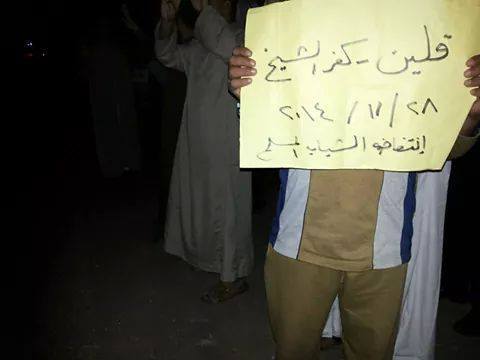 قلين - كفر الشيخ
٢٠١٤ / ١١ / ٢٨
إنتفاضه الشباب المسلم